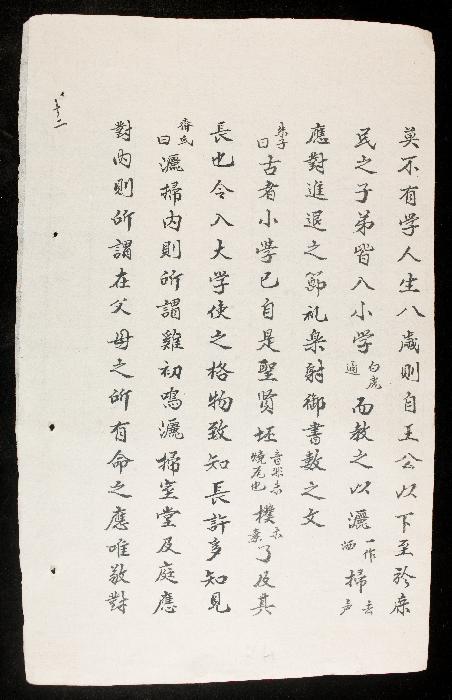 莫不有学人生八歳則自王公以下至於庶
民之子弟皆入小学白虎通而教之以灑一作洒掃去声
應對進退之節礼楽射御書數之文
朱子曰古者小學已自是聖贤坯燒瓦也樸素了及其
長也令入大学使之格物致知長許多知見
齊氏曰灑掃内則所謂雞初鳴灑掃室堂及庭應
對内則所謂在父母之所有命之應唯敬對